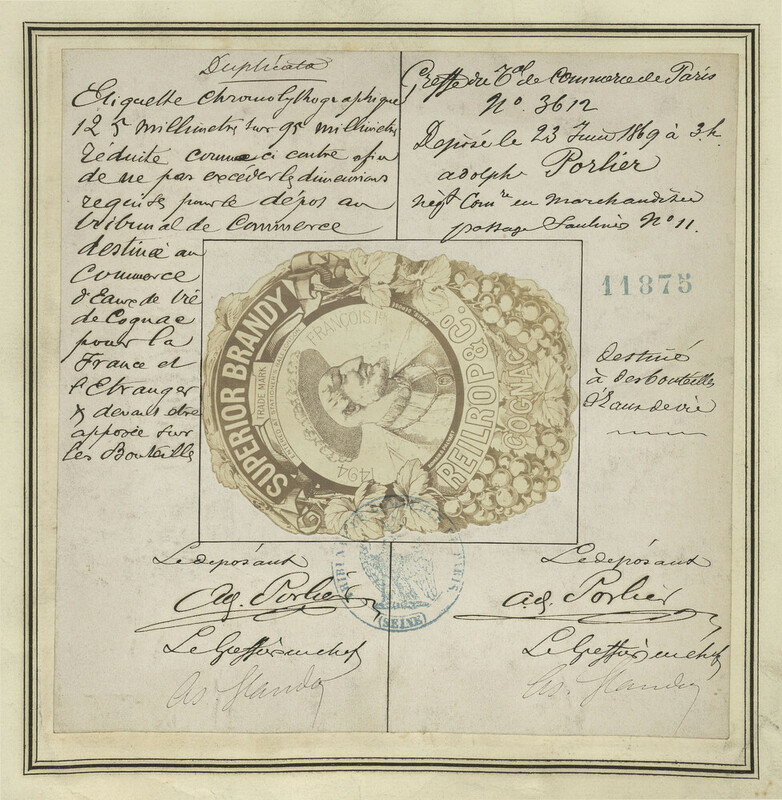 Duplicata
Etiquette chromolythographique
125 millimetres sur 95 millimetres
réduite comme ci contre afin
de ne pas excéder les dimensions
requises pour le dépos au
tribunal de Commerce
destiné au
Commerce
d'Eaux de vie
de Cognac
pour la
France et
l'Etranger
devant etre
apposée sur
les Bouteilles
Greffe du Tal de Commerce de Paris
No. 3612
Déposé le 23 Juin 1869 à 3 h.
adolphe Porlier
négt Comre en marchandises
passage Saulnier No 11.
11875
Destiné
à des bouteilles
d'Eaux de vie
SUPERIOR BRANDY
TRADE MARK
ENTERED AT STATIONERS HALL LONDON
FRANÇOIS Ier
1494
REILROP & Co.
COGNAC
Le déposant
Ad. Porlier
Le Greffier en chef
Le déposant
Ad. Porlier
Le Greffier en chef
TRIBUNAL DE COMMERCE PARIS
(SEINE)